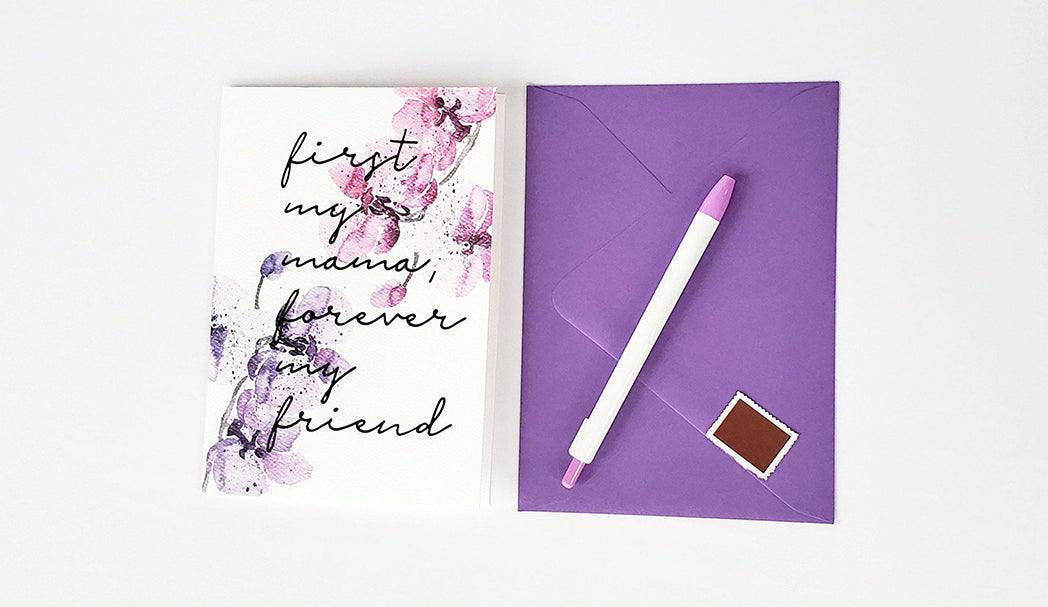 first
my
mama,
forever
my
friend